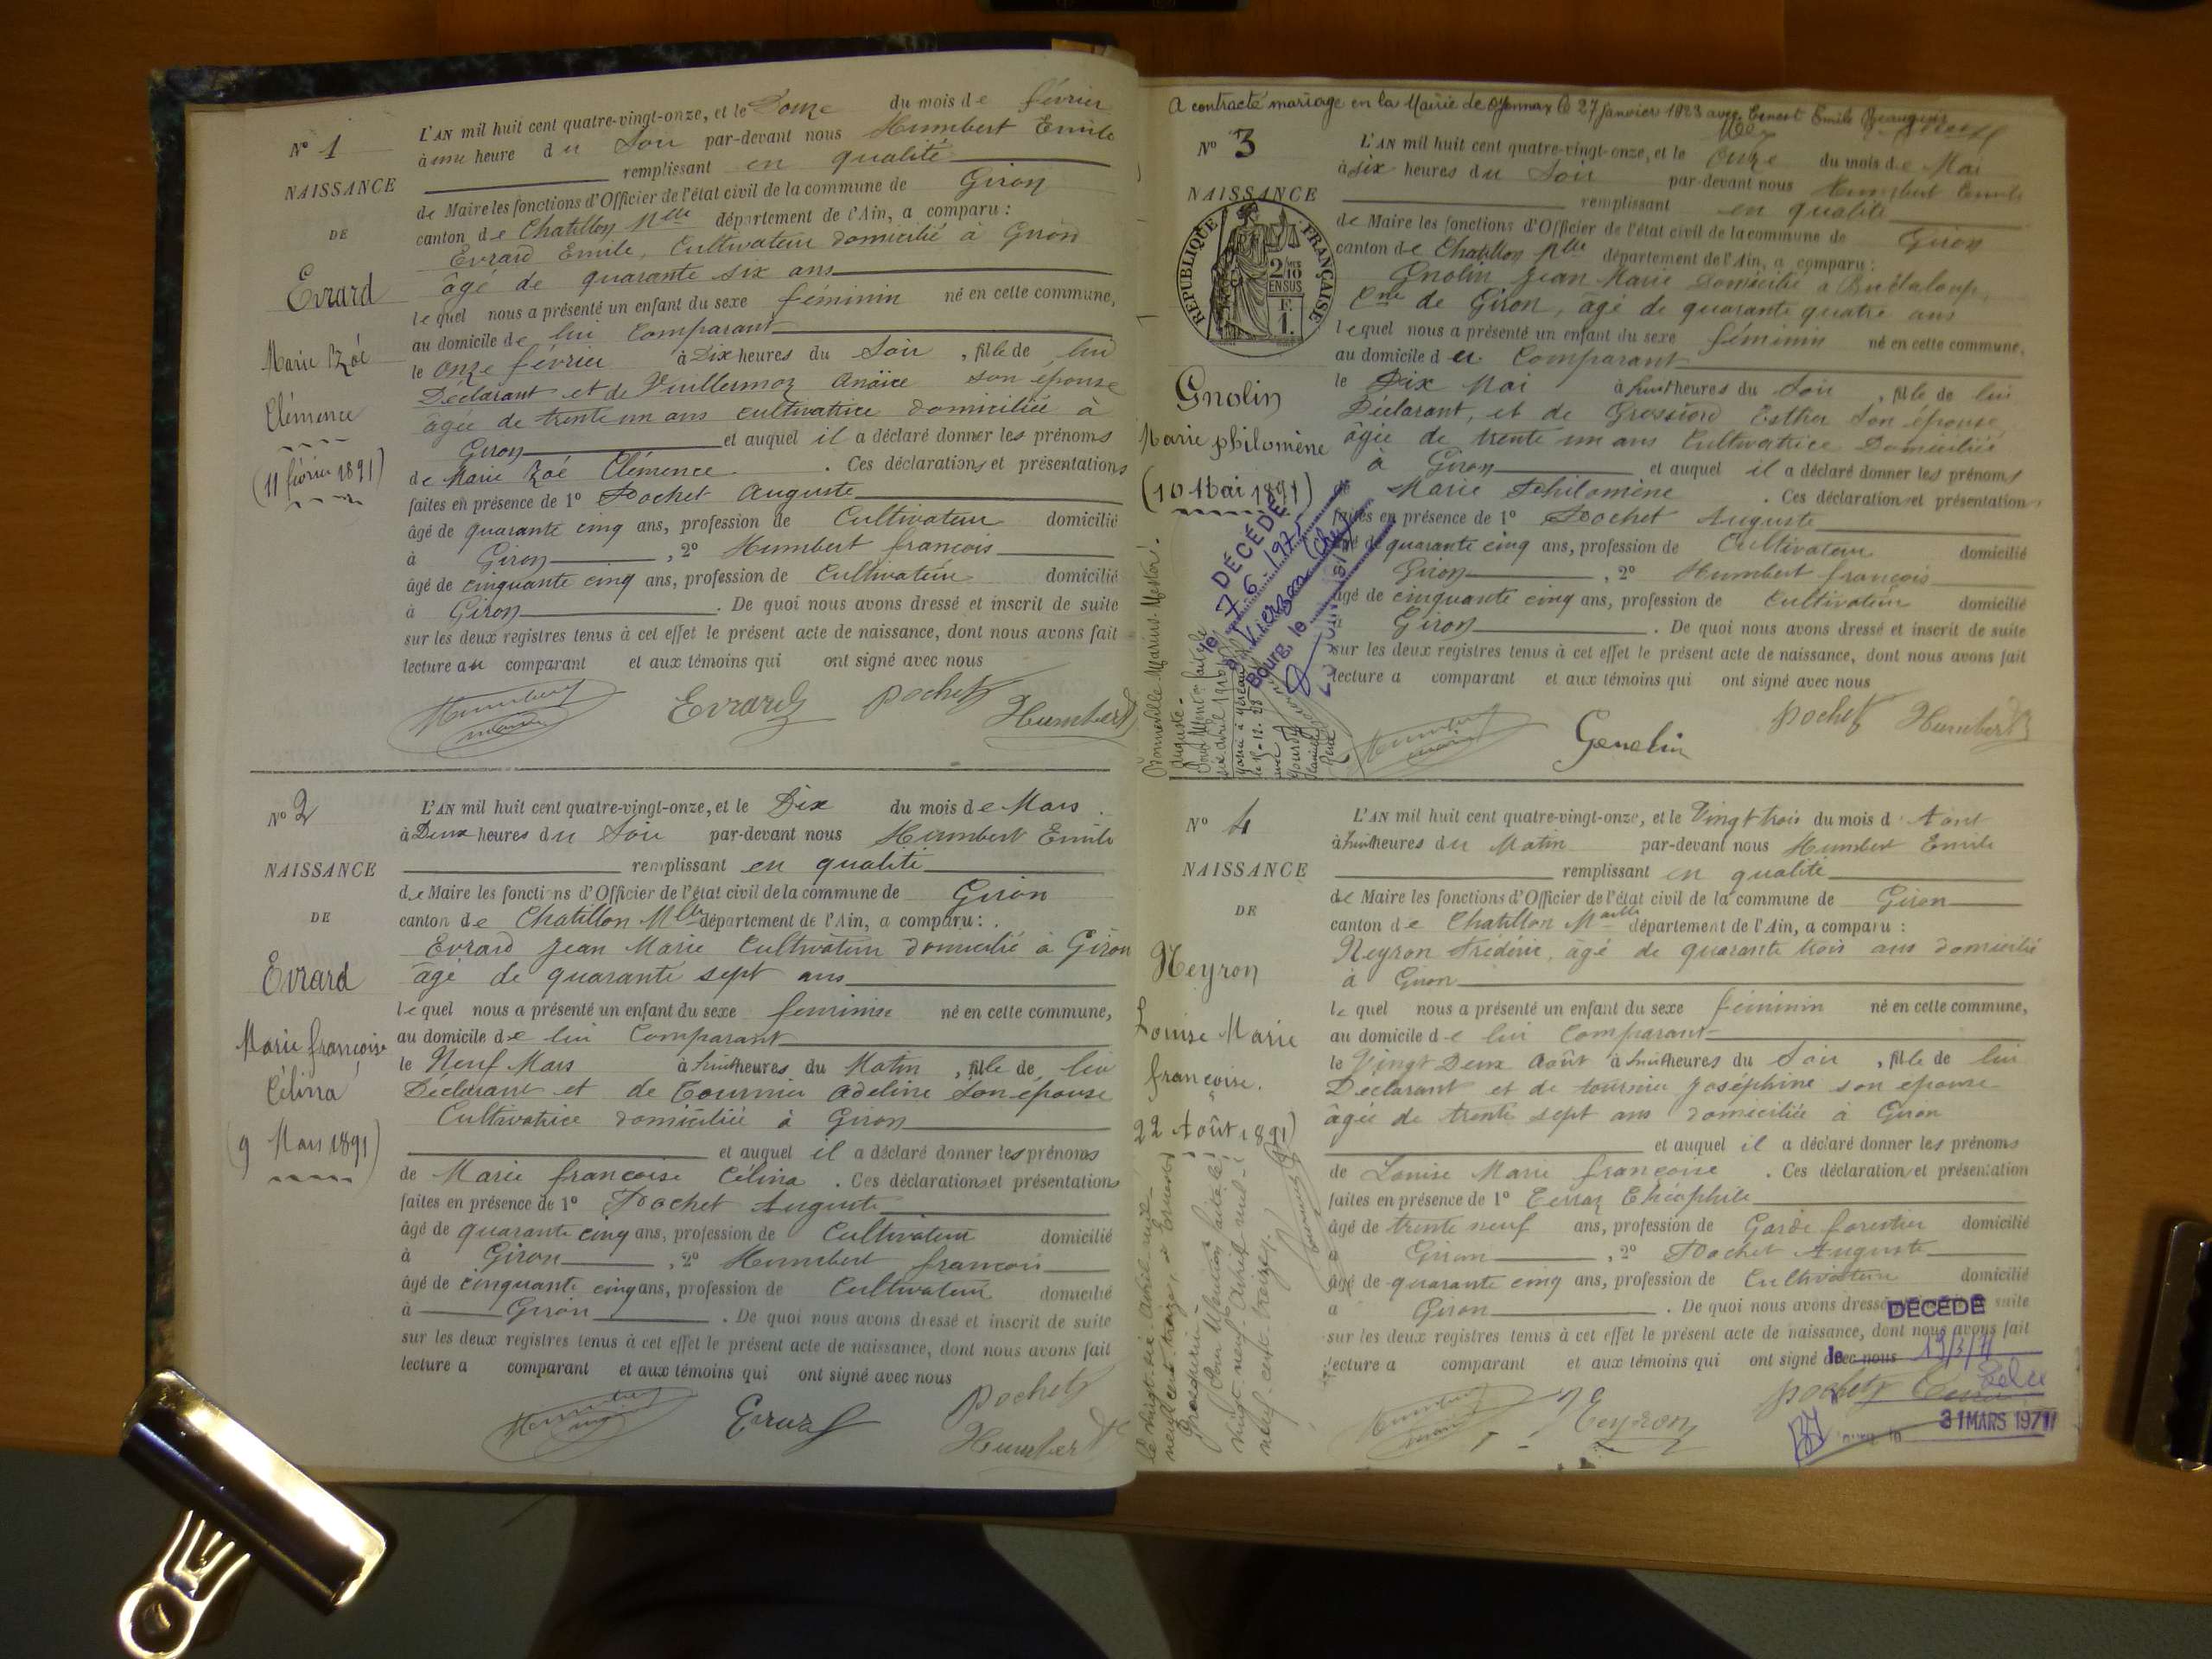 N° 1
NAISSANCE
DE
Evrard
Marie Zoé
Clémence
(11 février 1891)
L'AN mil huit cent quatre-vingt-onze, et le Douze du mois de février
à une heure du Soir par-devant nous Humbert Emile
remplissant en qualité
de Maire les fonctions d'Officier de l'état civil de la commune de Giron
canton de Chatillon Mlle département de l'Ain, a comparu :
Evrard Emile, Cultivateur domicilié à Giron
âgé de quarante six ans
lequel nous a présenté un enfant du sexe féminin né en cette commune,
au domicile de lui Comparant
le onze février à Dix heures du Soir, fille de lui
Déclarant et de Vuillermoz Anaïce son épouse
âgée de trente un ans cultivatrice domiciliée à
Giron et auquel il a déclaré donner les prénoms
de Marie Zoé Clémence. Ces déclarations et présentations
faites en présence de 1° Pochet Auguste
âgé de quarante cinq ans, profession de Cultivateur domicilié
à Giron, 2° Humbert françois
âgé de cinquante cinq ans, profession de Cultivateur domicilié
à Giron. De quoi nous avons dressé et inscrit de suite
sur les deux registres tenus à cet effet le présent acte de naissance, dont nous avons fait
lecture au comparant et aux témoins qui ont signé avec nous
Evrard Pochet
Humbert
N° 2
NAISSANCE
DE
Evrard
Marie françoise
Célina
(9 Mars 1891)
L'AN mil huit cent quatre-vingt-onze, et le Dix du mois de Mars
à Deux heures du Soir par-devant nous Humbert Emile
remplissant en qualité
de Maire les fonctions d'Officier de l'état civil de la commune de Giron
canton de Chatillon Mlle département de l'Ain, a comparu :
Evrard Jean Marie Cultivateur domicilié à Giron
âgé de quarante sept ans
lequel nous a présenté un enfant du sexe féminin né en cette commune,
au domicile de lui Comparant
le Neuf Mars à huit heures du Matin, fille de lui
Déclarant et de Tournier Adeline son épouse
Cultivatrice domiciliée à Giron
et auquel il a déclaré donner les prénoms
de Marie françoise Célina. Ces déclarations et présentations
faites en présence de 1° Pochet Auguste
âgé de quarante cinq ans, profession de Cultivateur domicilié
à Giron, 2° Humbert françois
âgé de cinquante cinq ans, profession de Cultivateur domicilié
à Giron. De quoi nous avons dressé et inscrit de suite
sur les deux registres tenus à cet effet le présent acte de naissance, dont nous avons fait
lecture a comparant et aux témoins qui ont signé avec nous
Evrard Pochet
Humbert
A contracté mariage en la Mairie de Oyonnax le 27 Janvier 1923 avec Ernest Emile
N° 3
NAISSANCE
RÉPUBLIQUE FRANÇAISE
2/10
EN SUS
Gnolin
Marie philomène
(10 Mai 1891)
L'AN mil huit cent quatre-vingt-onze, et le onze du mois de Mai
à six heures du Soir par-devant nous Humbert Emile
remplissant en qualité
de Maire les fonctions d'Officier de l'état civil de la commune de Giron
canton de Chatillon Mlle département de l'Ain, a comparu :
Gnolin Jean Marie Domicilié à
Cne de Giron, âgé de quarante quatre ans
lequel nous a présenté un enfant du sexe féminin né en cette commune,
au domicile du Comparant
le Dix Mai à huit heures du Soir, fille de lui
Déclarant, et de Grossiord Esther Son épouse,
âgée de trente un ans Cultivatrice Domiciliée
à Giron et auquel il a déclaré donner les prénoms
de Marie Philomène. Ces déclaration et présentation
faites en présence de 1° Pochet Auguste
âgé de quarante cinq ans, profession de Cultivateur domicilié
Giron, 2° Humbert françois
âgé de cinquante cinq ans, profession de Cultivateur domicilié
Giron. De quoi nous avons dressé et inscrit de suite
sur les deux registres tenus à cet effet le présent acte de naissance, dont nous avons fait
lecture a comparant et aux témoins qui ont signé avec nous
DÉCÉDÉ
le 7 6 1975
à Vierzon (Cher)
Bourg, le
Genolin Pochet Humbert
N° 4
NAISSANCE
DE
Neyron
Louise Marie
françoise.
22 Août 1891)
L'AN mil huit cent quatre-vingt-onze, et le Vingt trois du mois d Août
à huit heures du Matin par-devant nous Humbert Emile
remplissant en qualité
de Maire les fonctions d'Officier de l'état civil de la commune de Giron
canton de Chatillon Maille département de l'Ain, a comparu :
Neyron Frédéric, âgé de quarante trois ans domicilié
à Giron
lequel nous a présenté un enfant du sexe féminin né en cette commune,
au domicile de lui Comparant
le Vingt Deux Août à huit heures du Soir, fille de lui
Déclarant et de tournier Joséphine son épouse
âgée de trente sept ans domiciliée à Giron
et auquel il a déclaré donner les prénoms
de Louise Marie françoise. Ces déclaration et présentation
faites en présence de 1° Terraz Théophile
âgé de trente neuf ans, profession de Garde forestier domicilié
Giron, 2° Pochet Auguste
âgé de quarante cinq ans, profession de Cultivateur domicilié
a Giron. De quoi nous avons dressé suite
sur les deux registres tenus à cet effet le présent acte de naissance, dont nous avons fait
lecture a comparant et aux témoins qui ont signé avec nous
DÉCÉDÉ
le 19/3/71
31 MARS 1971
Neyron Pochet